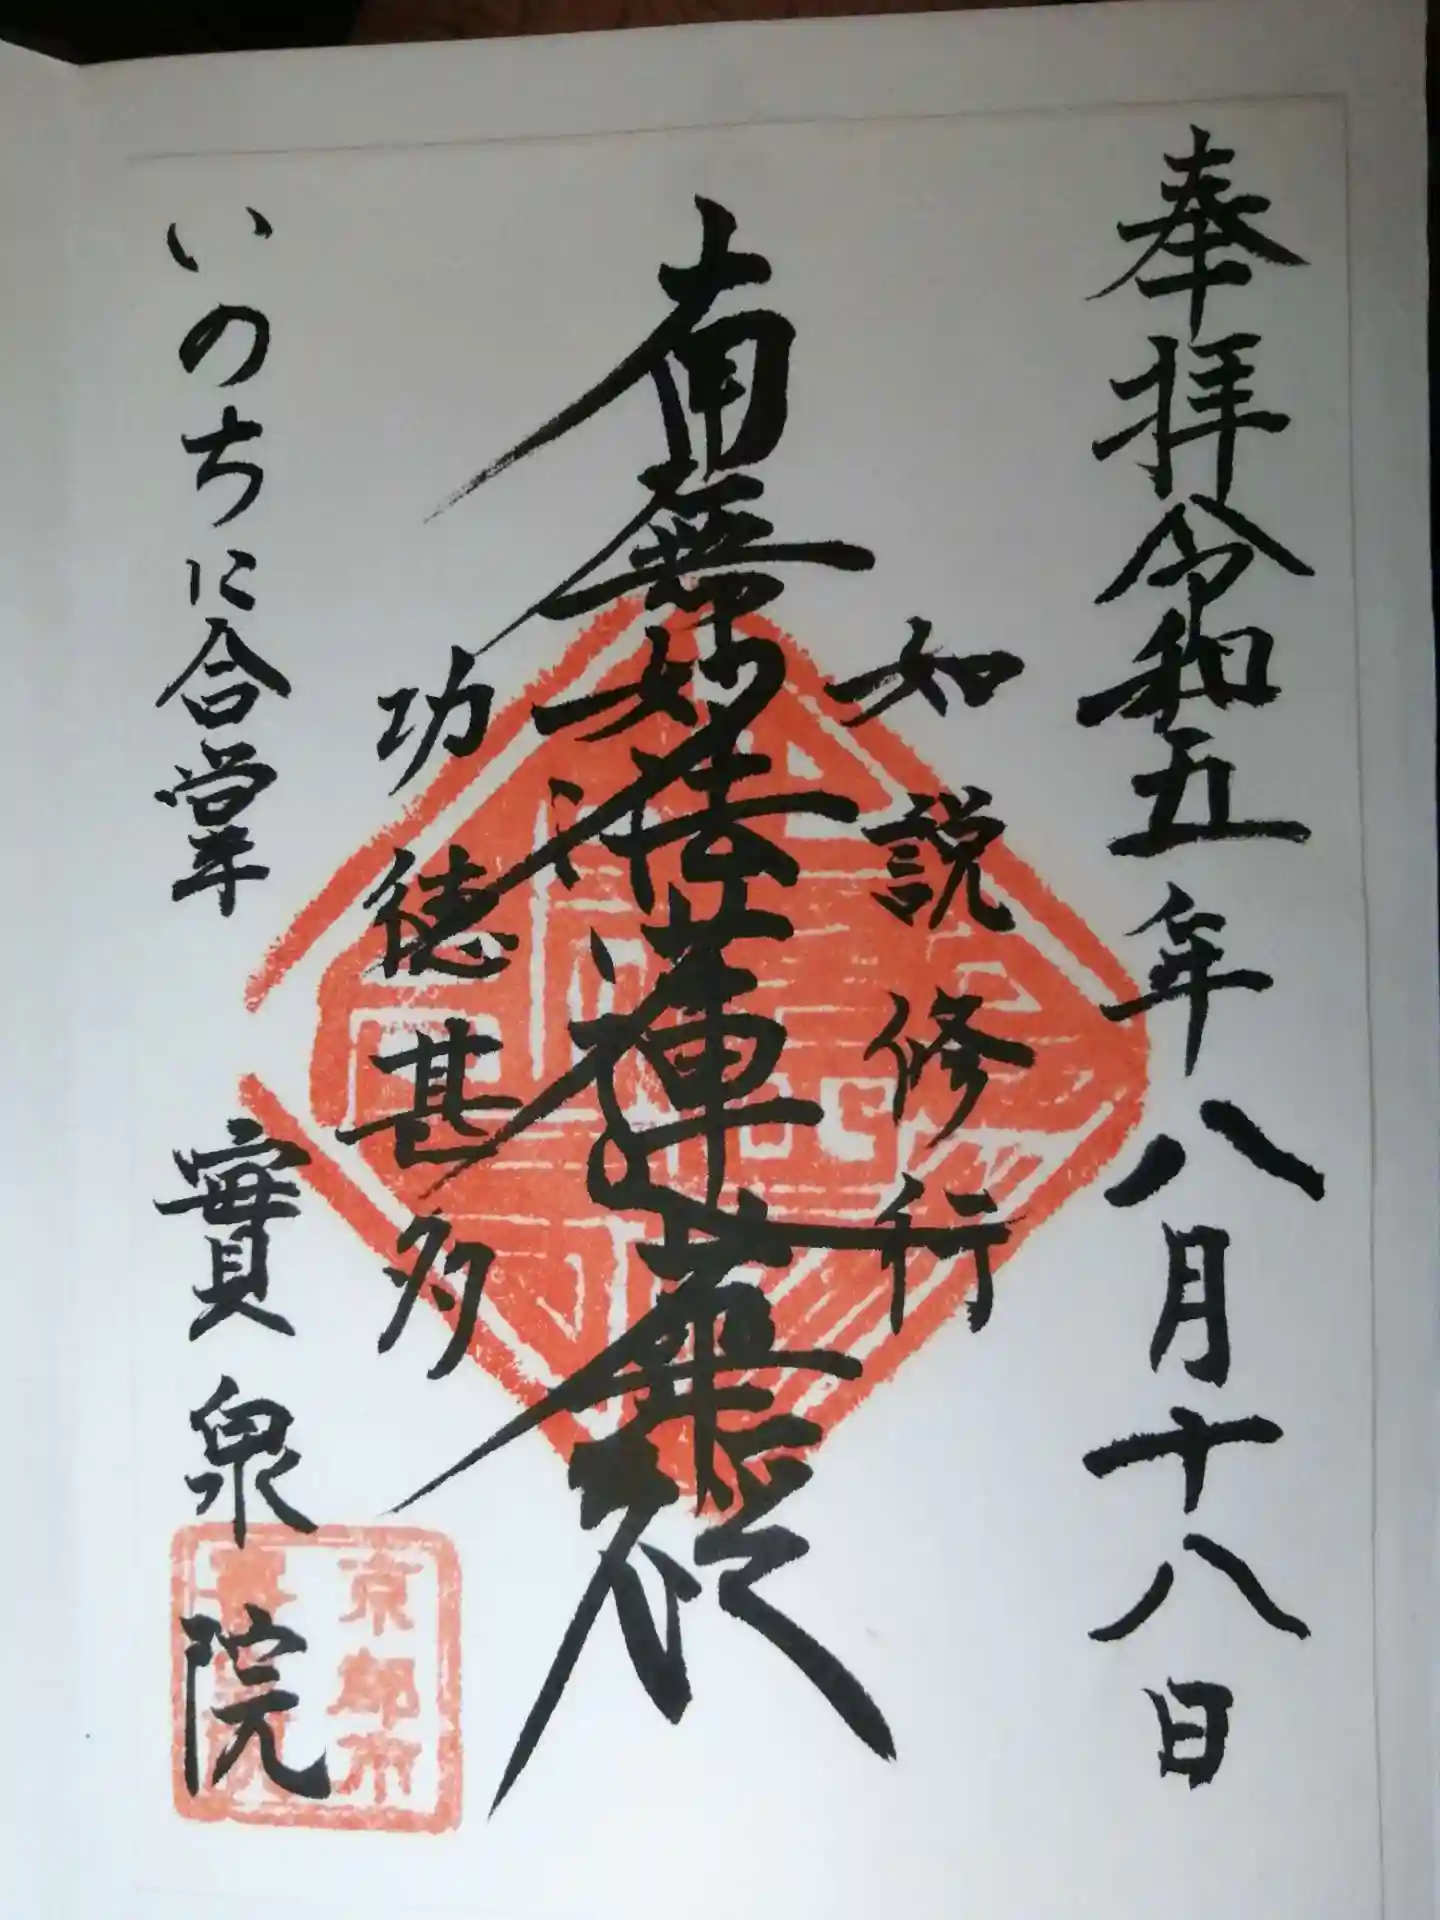 奉拝令和五年八月十八日
如説修行
南無妙法蓮華経
功徳甚多
いのちに合掌
實泉院
京都市